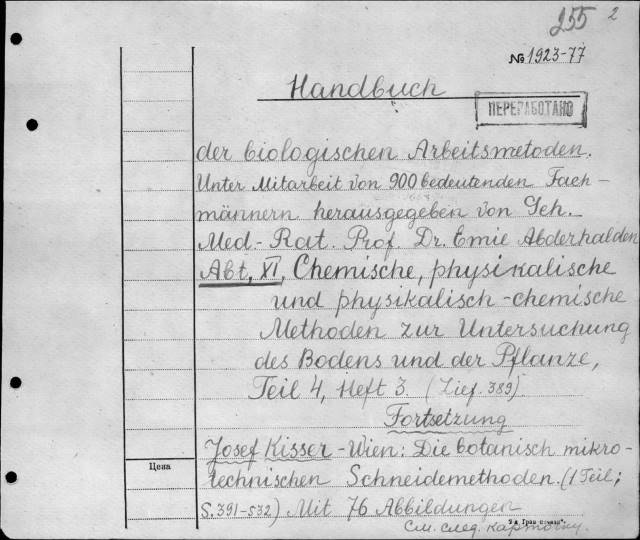 255 2
№ 1923-77
Handbuch
ПЕРЕРАБОТАНО
der biologischen Arbeitsmetoden.
Unter Mitarbeit von 900 bedeutenden Fach-
männern herausgegeben von Geh.
Med-Rat. Prof. Dr. Emie Abderhalden
Abt, XI, Chemische, physikalische
und physikalisch-chemische
Methoden zur Untersuchung
des Bodens und der Pflanze,
Teil 4, Heft 3. (Lief. 389).
Fortsetzung
Josef Kisser-Wien: Die botanisch mikro-
Цена
technischen Schneidemethoden. (1 Teil;
S. 391-532) Mit 76 Abbildungen
См. след. карточку.